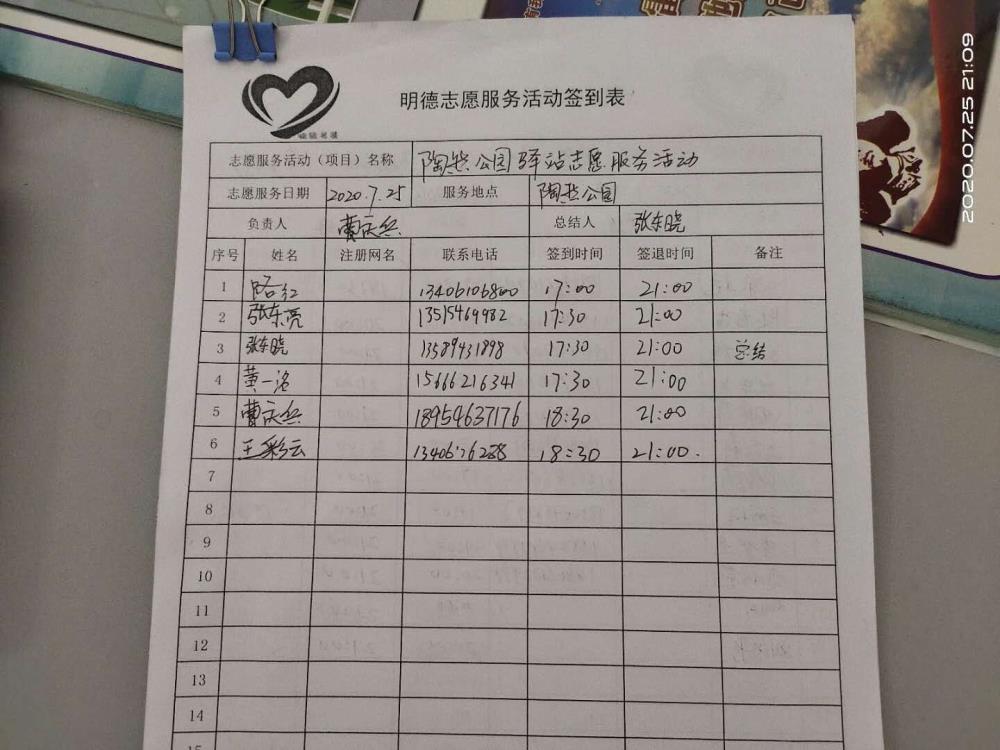 明德志愿服务活动签到表
志愿服务活动（项目）名称 陶然公园驿站志愿服务活动
志愿服务日期 2020.7.25 服务地点 陶然公园
负责人 曹庆兵 总结人 张东晓
序号 姓名 注册网名 联系电话 签到时间 签退时间 备注
1 路红 13406106800 17:00 21:00
2 张东亮 13515469982 17:30 21:00
3 张东晓 13589431898 17:30 21:00 总结
4 黄一洛 15666216341 17:30 21:00
5 曹庆兵 18954637176 18:30 21:00
6 王彩云 18:30 21:00.
7
8
9
10
11
12
13
14
15
2020.07.25 21:09